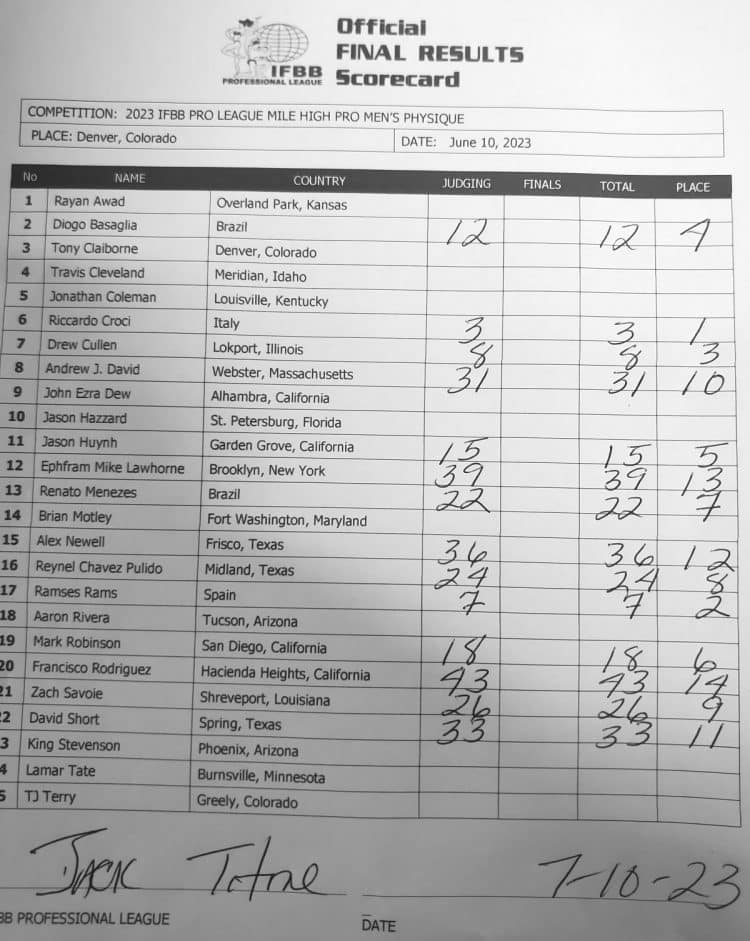 Official
FINAL RESULTS
IFBB Scorecard
PROFESSIONAL LEAGUE
COMPETITION: 2023 IFBB PRO LEAGUE MILE HIGH PRO MEN'S PHYSIQUE
PLACE: Denver, Colorado DATE: June 10, 2023
No NAME COUNTRY JUDGING FINALS TOTAL PLACE
1 Rayan Awad Overland Park, Kansas
2 Diogo Basaglia Brazil 12 12 4
3 Tony Claiborne Denver, Colorado
4 Travis Cleveland Meridian, Idaho
5 Jonathan Coleman Louisville, Kentucky
6 Riccardo Croci Italy 3 3 1
7 Drew Cullen Lokport, Illinois 8 8 3
8 Andrew J. David Webster, Massachusetts 31 31 10
9 John Ezra Dew Alhambra, California
10 Jason Hazzard St. Petersburg, Florida
11 Jason Huynh Garden Grove, California 15 15 5
12 Ephfram Mike Lawhorne Brooklyn, New York 39 39 13
13 Renato Menezes Brazil 22 22 7
14 Brian Motley Fort Washington, Maryland
15 Alex Newell Frisco, Texas 36 36 12
16 Reynel Chavez Pulido Midland, Texas 24 24 8
17 Ramses Rams Spain 7 7 2
18 Aaron Rivera Tucson, Arizona
19 Mark Robinson San Diego, California 18 18 6
20 Francisco Rodriguez Hacienda Heights, California 43 43 14
21 Zach Savoie Shreveport, Louisiana 26 26 9
2 David Short Spring, Texas 33 33 11
3 King Stevenson Phoenix, Arizona
4 Lamar Tate Burnsville, Minnesota
5 TJ Terry Greely, Colorado
Jack Titone 7-10-23
BB PROFESSIONAL LEAGUE DATE